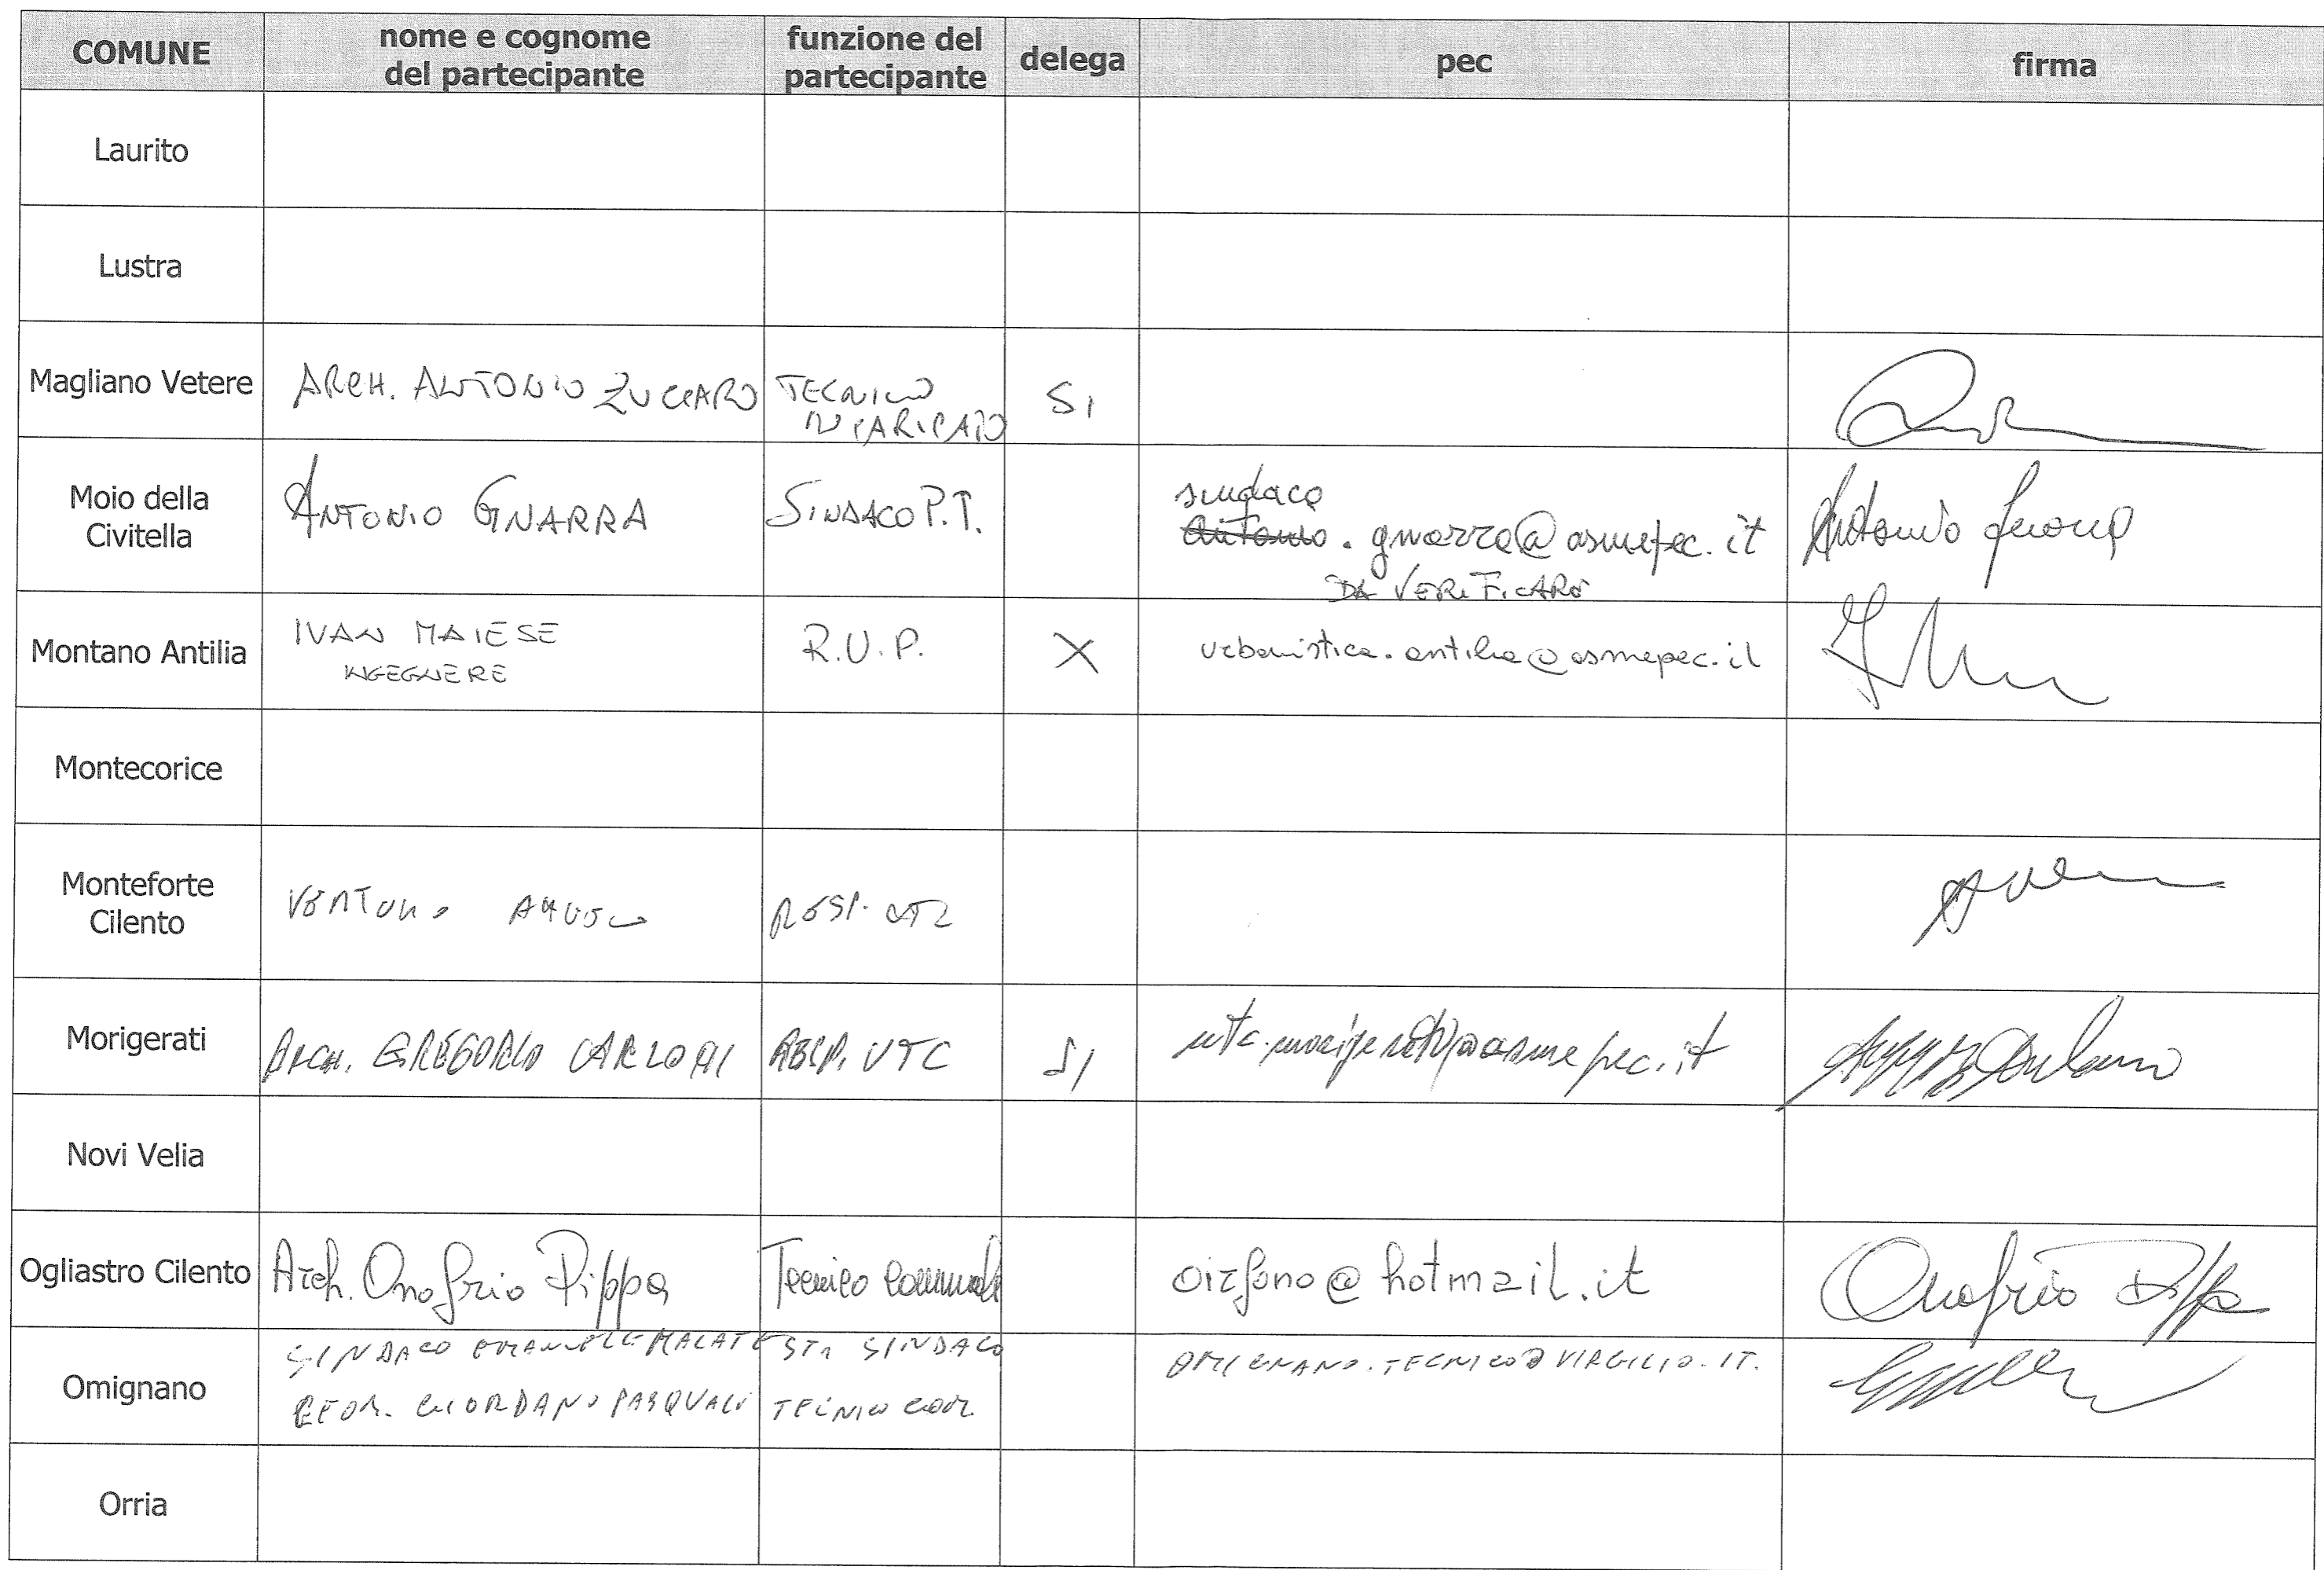 COMUNE
nome e cognome
del partecipante
funzione del
partecipante
delega
pec
firma
Laurito
Lustra
Magliano Vetere
ARCH. ANTONIO ZUCCARO
TECNICO
INCARICATO
SI
Moio della
Civitella
ANTONIO GNARRA
SINDACO P.T.
sindaco
antonio . gnarra@asmepec.it
DA VERIFICARE
Antonio Gnarra
Montano Antilia
IVAN MAIESE
INGEGNERE
R.U.P.
X
urbanistica.antilia@asmepec.it
Montecorice
Monteforte
Cilento
RESP. UTC
Morigerati
ARCH. GREGORIO
RESP. UTC
SI
utc.morigerati@asmepec.it
Novi Velia
Ogliastro Cilento
Arch. Onofrio Pippa
Tecnico Comunale
oirfono@hotmail.it
Onofrio Pippa
Omignano
SINDACO EMANUELE MALATESTA SINDACO
GEOM. GIORDANO PASQUALE
TECNICO COM.
OMIGNANO.TECNICO@VIRGILIO.IT.
Orria